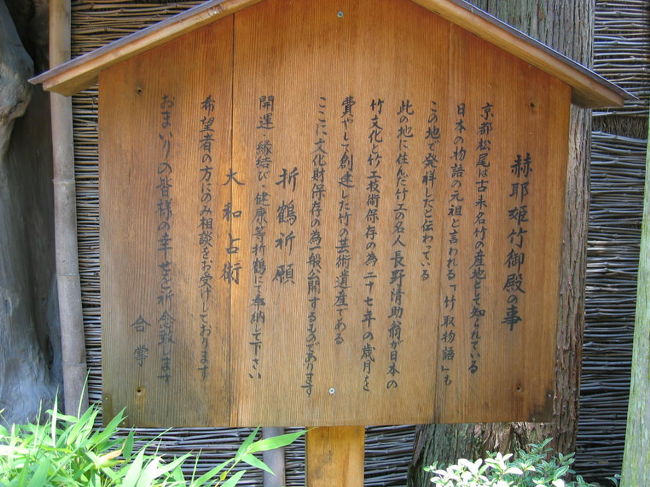 赫耶姫竹御殿の事
京都松尾は古来名竹の産地として知られている
日本の物語の元祖と言われる「竹取物語」も
この地で発祥したと伝わっている
此の地に住んだ竹工の名人長野清助翁が日本の
竹文化と竹工技術保存の為二十七年の歳月を
費やして創建した竹の芸術遺産である
ここに文化財保存の為一般公開するものであります
折鶴祈願
開運、縁結び、健康等祈鶴にて奉納して下さい
大和占術
希望者の方にのみ相談をお受けしております
おまいりの皆様の幸せを祈念致します
合掌